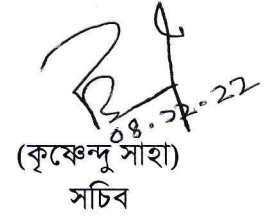 08.12.22
(কৃষ্ণেন্দু সাহা)
সচিব